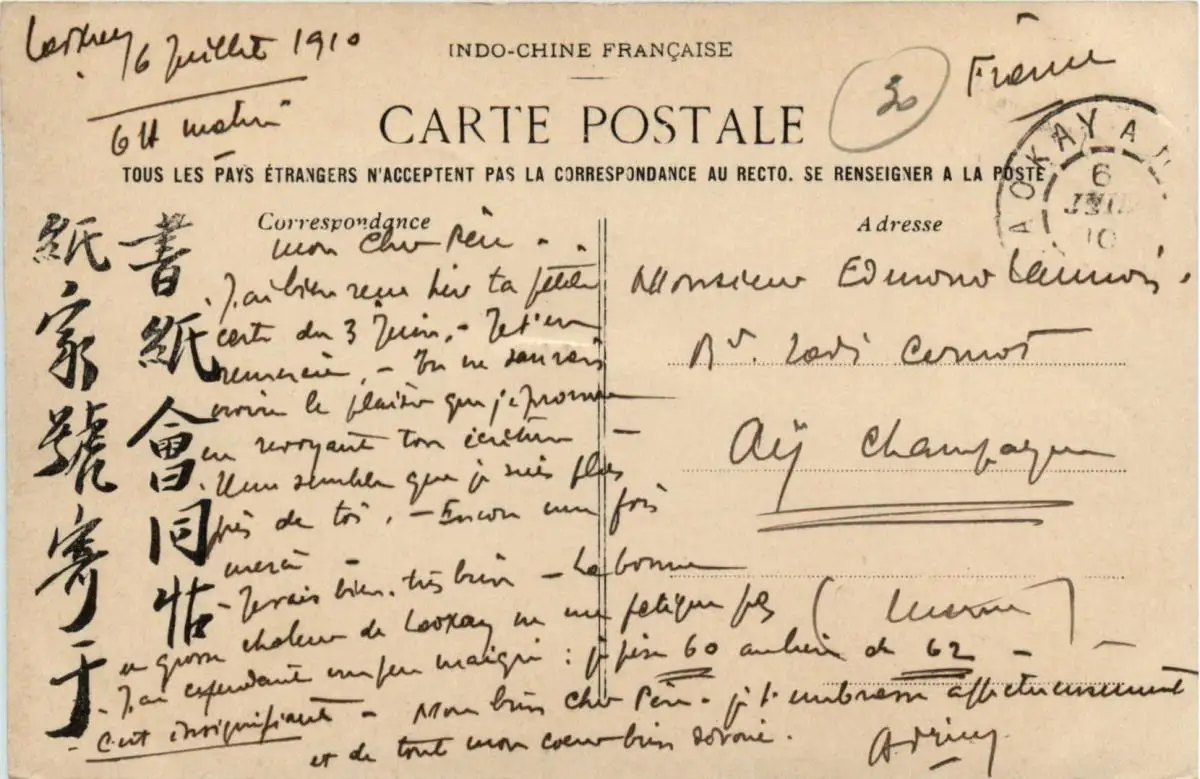 Laokay 6 Juillet 1910
6 H matin
INDO-CHINE FRANÇAISE
CARTE POSTALE
30
France
TOUS LES PAYS ÉTRANGERS N'ACCEPTENT PAS LA CORRESPONDANCE AU RECTO. SE RENSEIGNER A LA POSTE
LAOKAY
6
JUIL
10
Correspondance
書紙會同怗
紙家號寄于
mon cher Père
J'ai bien reçu hier ta petite
carte du 3 Juin. - Je t'en
remercie. - Tu ne saurais
croire le plaisir que j'éprouve
en revoyant ton écriture -
Il me semble que je suis plus
près de toi. - Encore une fois
merci -
- Je vais bien, très bien - La bonne
et grosse chaleur de Laokay ne me fatigue pas
- J'ai cependant un peu maigri : je pèse 60 au lieu de 62 -
- C'est insignifiant - Mon bien cher Père - je t'embrasse affectueusement
et de tout mon coeur bien dévoué.
Adresse
Monsieur Edmond
Bd. Sadi Carnot
Aÿ Champagne
(Marne)